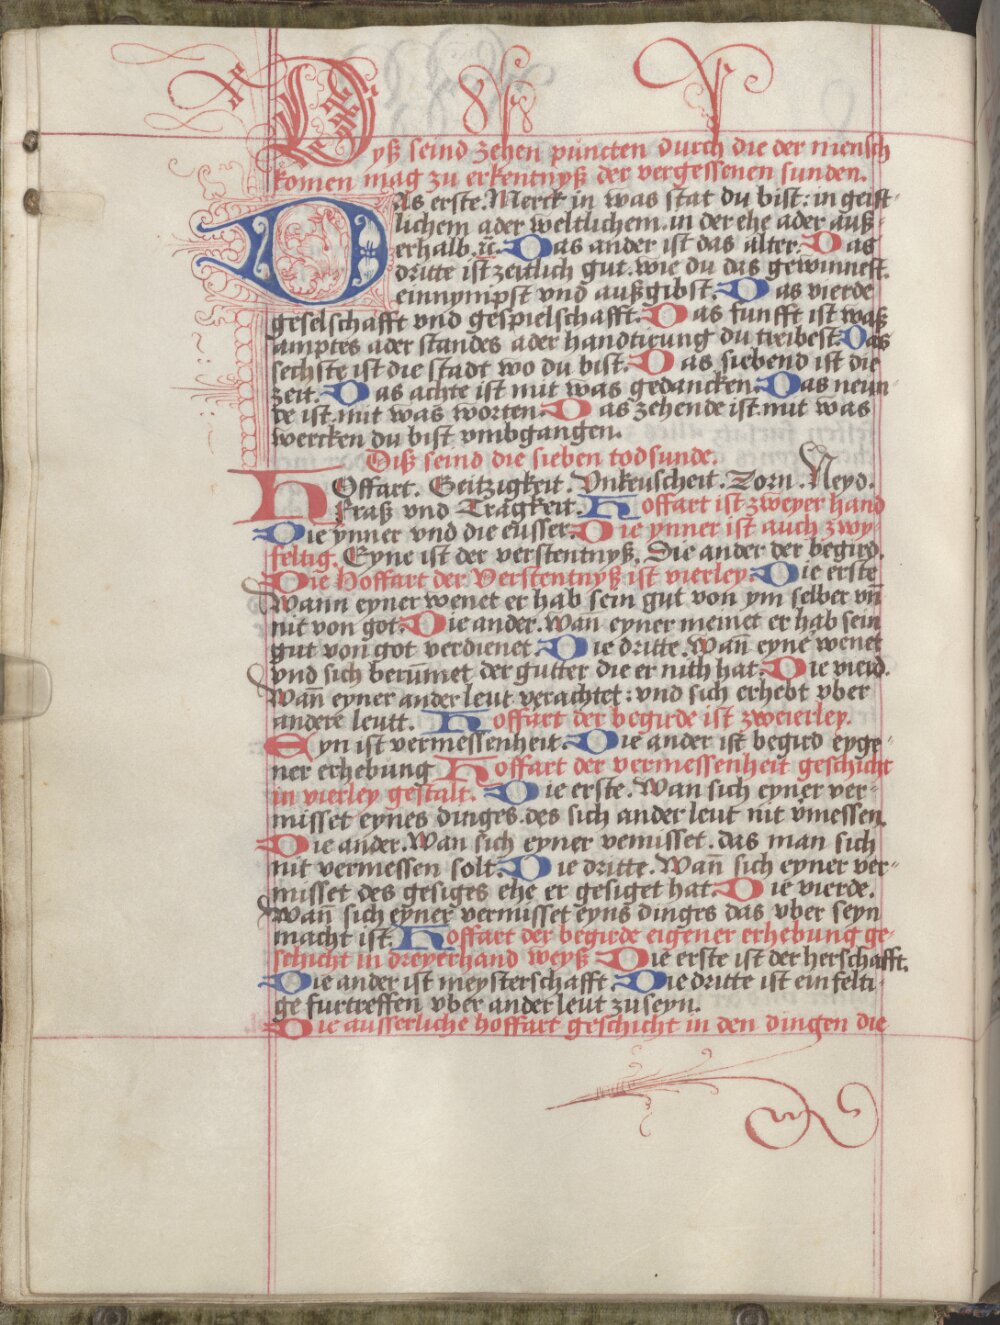 Dyß seind zehen puncten durch die der mensch
komen mag zu erkentnyß der vergessenen sunden.
DAs erste. Merck in was stat du bist: in geist-
lichem ader weltlichem. in der ehe ader auß-
erhalb. ꝛc. Das ander ist das alter. Das
dritte ist zeitlich gut. wie du das gewinnest.
einnympst vnd außgibst. Das vierde
geselschafft vnd gespielschafft. Das funfft ist waß
amptes ader standes ader handtirung du treibest. Das
sechste ist die stadt wo du bist. Das siebend ist die
zeit. Das achte ist mit was gedancken. Das neun-
de ist. mit was worten. Das zehende ist. mit was
wercken du bist vmbgangen.
Diß seind die sieben todsunde.
HOffart. Geitzigkeit. Vnkeuscheit. Zorn. Neyd.
Fraß vnd Tragkeit. Hoffart ist zweyer hand
Die ynner vnd die eusser. Die ynner ist auch zwy-
feltig. Eyne ist der verstentnyß. Die ander der begird.
Die Hoffart der Verstentnyß ist vierley. Die erste
Wann eyner wenet er hab sein gut von ym selber vn̄
nit von got. Die ander. Wan̄ eyner meinet er hab sein
gut von got verdienet. Die dritte. Wan̄ eyne wenet
vnd sich berůmet der gutter die er nith hat. Die vierd.
Wan̄ eyner ander leut verachtet: vnd sich erhebt vber
andere leutt. Hoffart der begirde ist zweierley.
Eyn ist vermessenheit. Die ander ist begird eyge-
ner erhebung Hoffart der vermessenheit geschicht
in vierley gestalt. Die erste. Wan sich eyner ver-
misset eynes dinges. des sich ander leut nit v̄messen.
Die ander. Wan sich eyner vemisset. das man sich
nit vermessen solt. Die dritte. Wan̄ sich eyner ver-
misset des gesiges ehe er gesiget hat. Die vierde.
Wan̄ sich eyner vermisset eyns dinges das vber seyn
macht ist. Hoffart der begirde eigener erhebung ge-
schicht in dreyerhand weyß Die erste ist der herschafft.
Die ander ist meysterschafft. Die dritte ist einfelti-
ge furtreffen vber ander leut zuseyn.
Die ausserliche hoffart geschicht in den dingen die